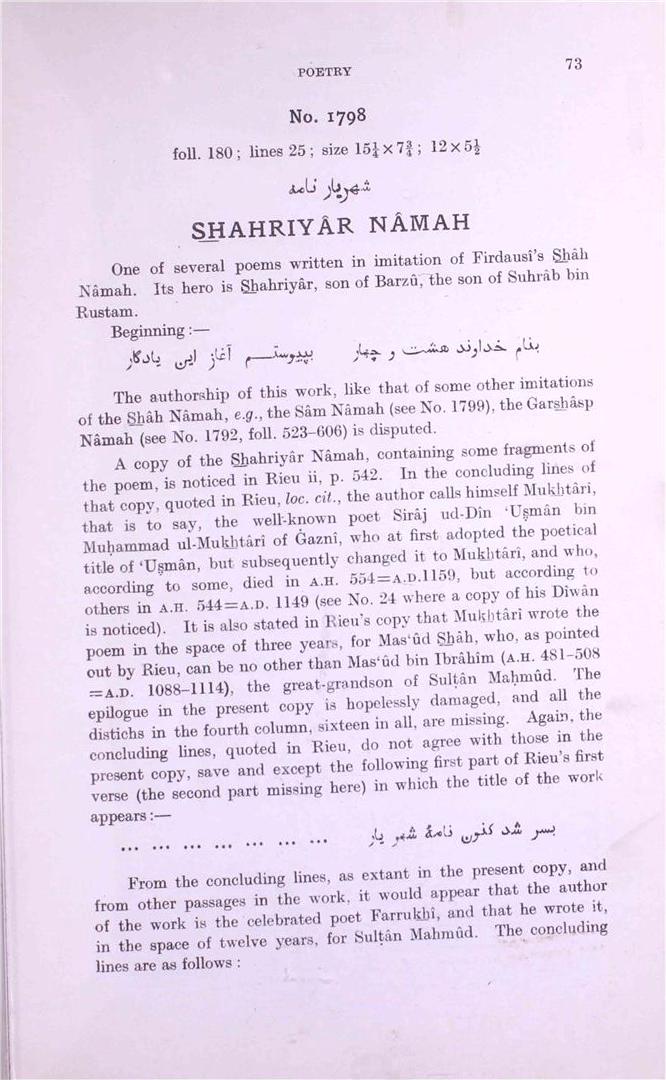 POETRY 73
No. 1798
foll. 180 ; lines 25 ; size 15¼ × 7¾ ; 12 × 5½
شهريار نامه
SHAHRIYÂR NÂMAH
One of several poems written in imitation of Firdausî's Shâh
Nâmah. Its hero is Shahriyâr, son of Barzû, the son of Suhrâb bin
Rustam.
Beginning :—
بنام خداوند هشت و چهار بپيوستم آغاز اين يادگار
The authorship of this work, like that of some other imitations
of the Shâh Nâmah, e.g., the Sâm Nâmah (see No. 1799), the Garshâsp
Nâmah (see No. 1792, foll. 523–606) is disputed.
A copy of the Shahriyâr Nâmah, containing some fragments of
the poem, is noticed in Rieu ii, p. 542. In the concluding lines of
that copy, quoted in Rieu, loc. cit., the author calls himself Mukhtârî,
that is to say, the well-known poet Sirâj ud-Dîn ‘Uṣmân bin
Muḥammad ul-Mukhtârî of Ġaznî, who at first adopted the poetical
title of ‘Uṣmân, but subsequently changed it to Mukhtârî, and who,
according to some, died in A.H. 554=A.D.1159, but according to
others in A.H. 544=A.D. 1149 (see No. 24 where a copy of his Dîwân
is noticed). It is also stated in Rieu's copy that Mukhtârî wrote the
poem in the space of three years, for Mas‘ûd Shâh, who, as pointed
out by Rieu, can be no other than Mas‘ûd bin Ibrâhîm (A.H. 481–508
=A.D. 1088–1114), the great-grandson of Sulṭân Maḥmûd. The
epilogue in the present copy is hopelessly damaged, and all the
distichs in the fourth column, sixteen in all, are missing. Again, the
concluding lines, quoted in Rieu, do not agree with those in the
present copy, save and except the following first part of Rieu's first
verse (the second part missing here) in which the title of the work
appears :—
بسر شد كنون نامهٔ شهر يار ... ... ... ... ... ... ...
From the concluding lines, as extant in the present copy, and
from other passages in the work, it would appear that the author
of the work is the celebrated poet Farrukhî, and that he wrote it,
in the space of twelve years, for Sulṭân Mahmûd. The concluding
lines are as follows :